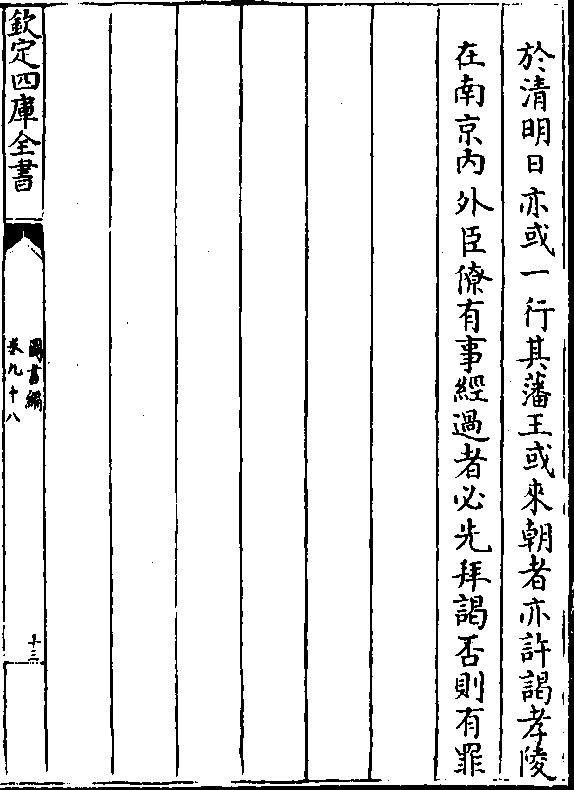 於清明日亦或一行其藩王或來朝者亦許謁孝陵
在南京內外臣僚有事經過者必先拜謁否則有罪
欽定四庫全書
圖書編
卷九十八
十三